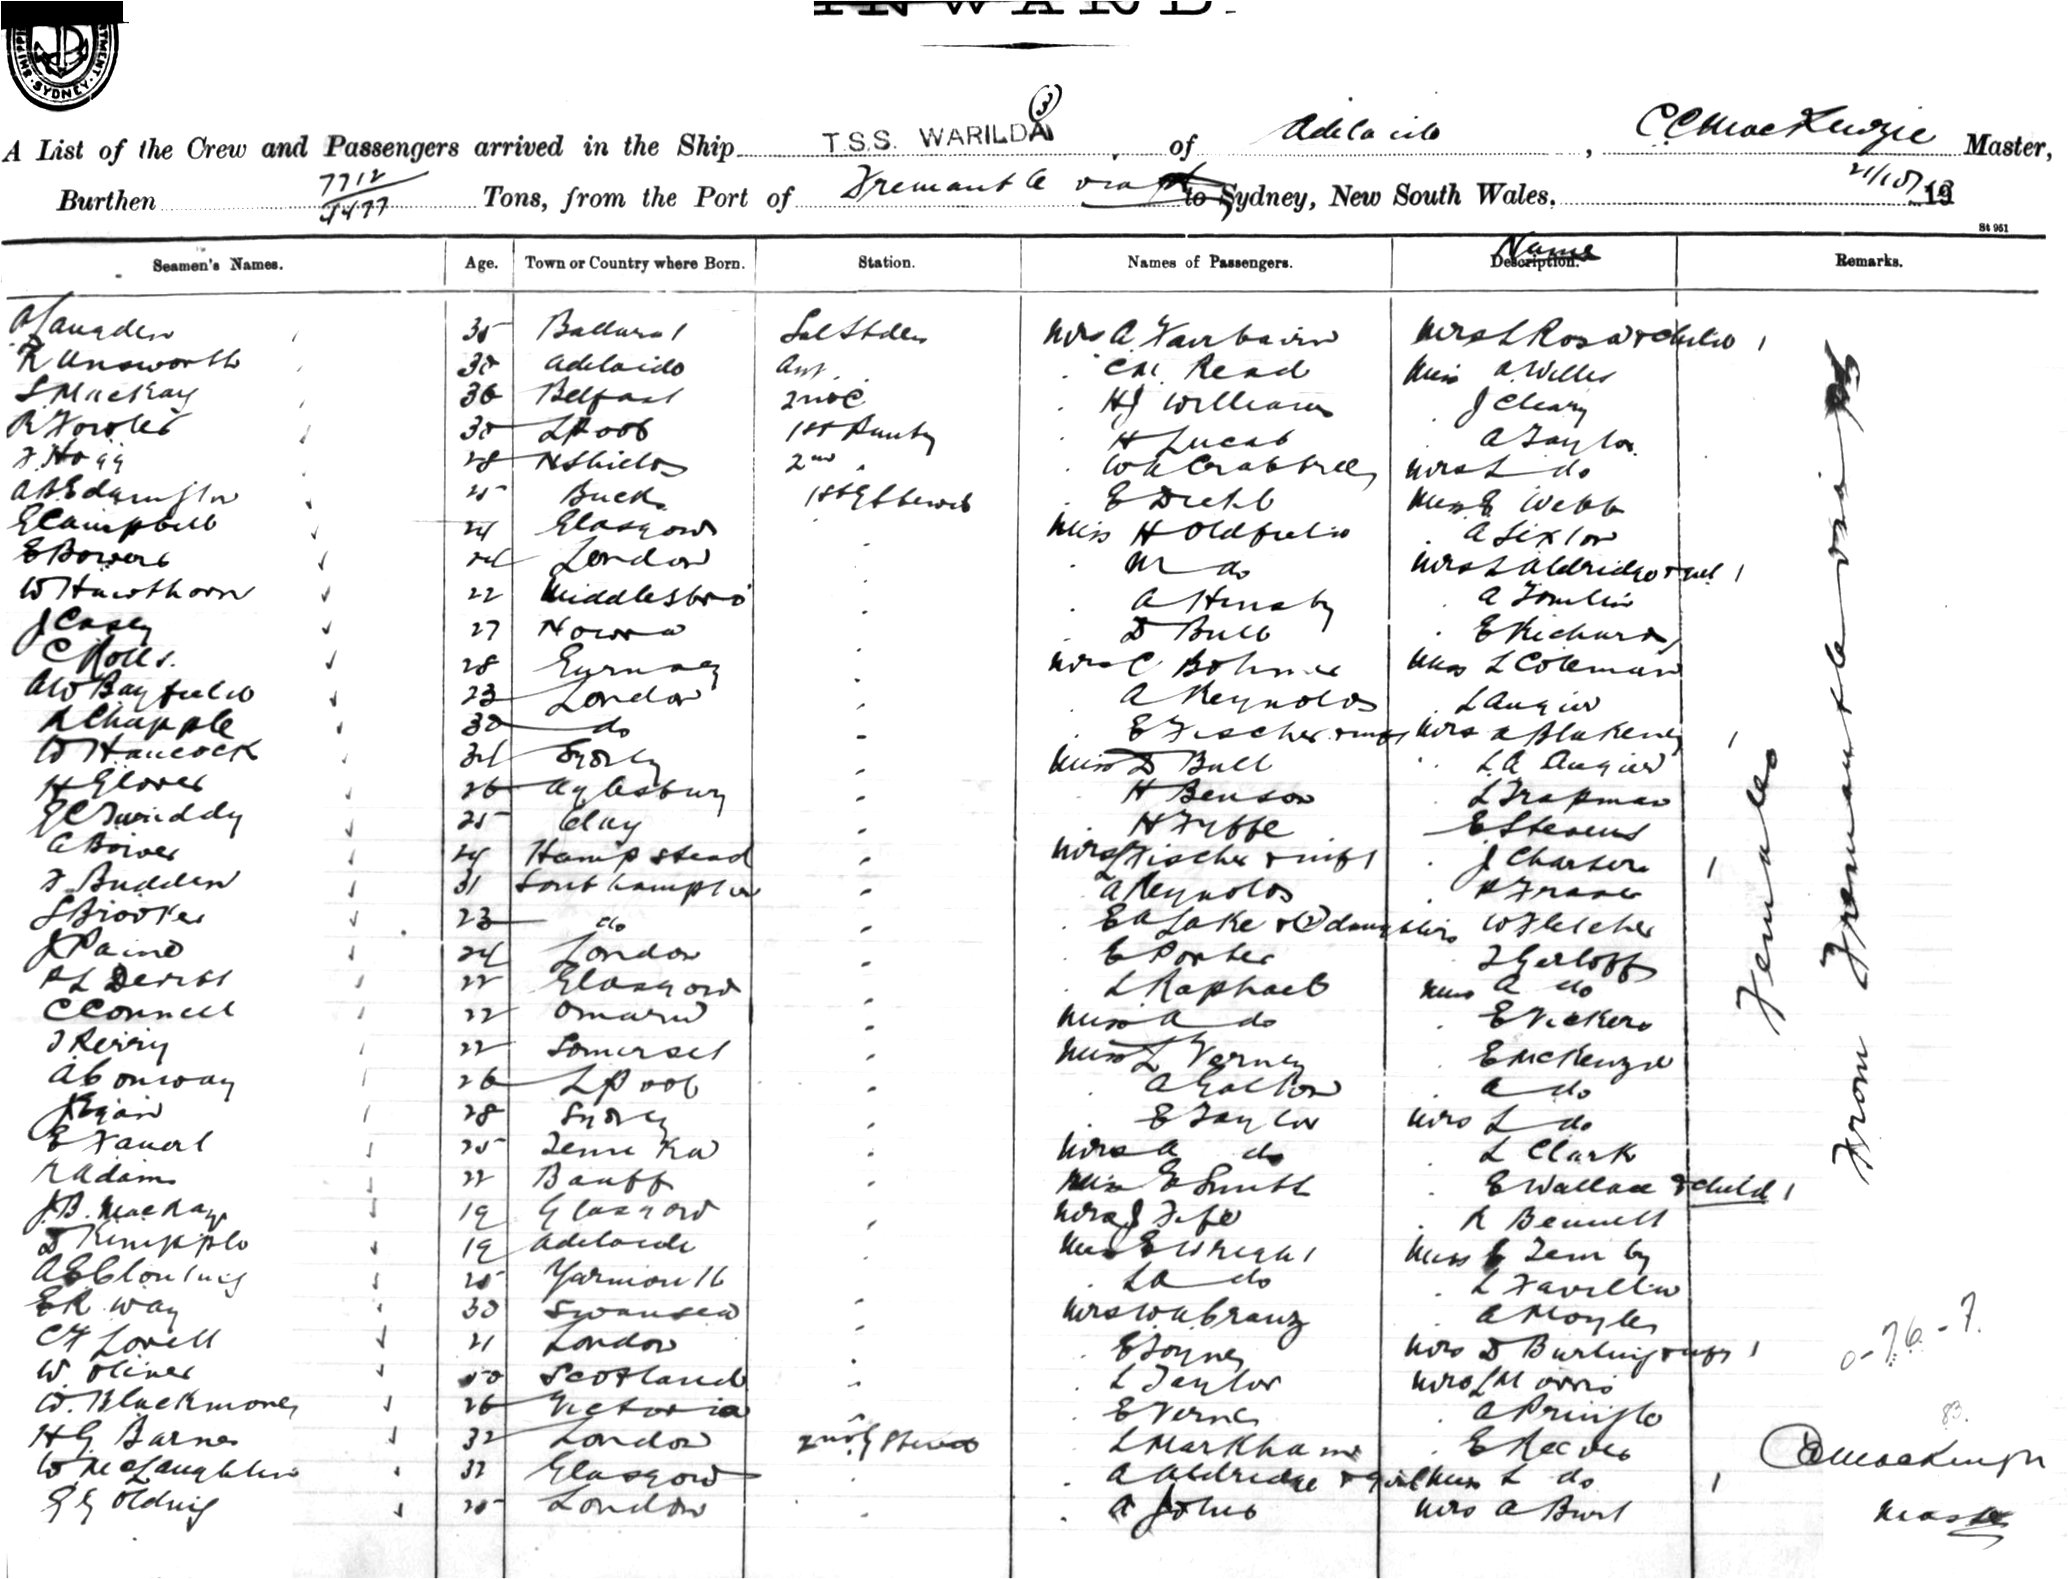 INWARD.
SYDNEY
3
A List of the Crew and Passengers arrived in the Ship T.S.S. WARILDA of Adelaide, C C MacKenzie Master,
Burthen 7712 / 4477 Tons, from the Port of Fremantle via to Sydney, New South Wales, 21/10/ 19
St 951
Seamen's Names. Age. Town or Country where Born. Station. Names of Passengers. Description. Name Remarks.
35 Ballarat Mrs A Fairbairn Mrs L Rosa & child 1
R Unsworth 30 Adelaide C M Read Miss A Willis
S MacKay 36 Belfast 2nd C H J Williams J Cleary
R Fowler 30 L'Pool 1st Pantry H Lucas A Taylor
F Hogg 28 N Shields 2nd W A Crabtree Mrs L do
25 Bucks E Diehl Miss E Webb
G Campbell 24 Glasgow Miss H Oldfield A Sixton
E Bowers 24 London M do Mrs L Aldridge & 1
W Hawthorn 22 Middlesbro' A Hensby A Tomlin
J Casey 27 Nowra D Bull E Richards
C Rolls. 28 Mrs C Miss L Coleman
A W Bayfield 23 London A Reynolds L Augier
R Chapple 30 do E Fischer & inft Mrs A Blakeney 1
W Hancock 34 Sydney Miss D Bull L A Augier
H Glover 26 Aylesbury H Benson L Trapman
G C Twiddy 25 Clay H Fyffe E Stevens
24 Hampstead Mrs L Fischer & inft J Charters 1
F Budden 31 Southampton A Reynolds P Fraser
S Brooker 23 do E A Lake & (2) daughters W Fletcher
J Paine 24 London E Porter Gerloff
22 Glasgow L Raphael Miss A do
C Connell 22 Omaru Miss A do E Vickers
22 Somerset Miss L Varney E McKenzie
A Conway 26 L'Pool A Galton A do
J Egan 28 Sydney E Taylor Mrs L do
25 Mrs A do L Clark
R Adams 22 Banff Miss E Smith E Wallace & child 1
J. B. MacKay 19 Glasgow Mrs J Fife R Bennett
D 19 Adelaide Miss E Wright Miss
25 Yarmouth L A do L
E R Way 30 Swansea Mrs W A Cranz A Moyle
C F Lovell 21 London E Toyne Mrs D & inft 1
W. Oliver 50 Scotland L Taylor Mrs L Morris
W. Blackmore 26 Victoria E A Pringle
H G Barnes 32 London 2nd L Markham E Reeves
W McLaughlin 32 Glasgow A Aldridge & girl Miss L do 1
G Golding 25 London A Johns Mrs A Burt
Females
From Fremantle via
0-76-7.
83.
C C MacKenzie
Master